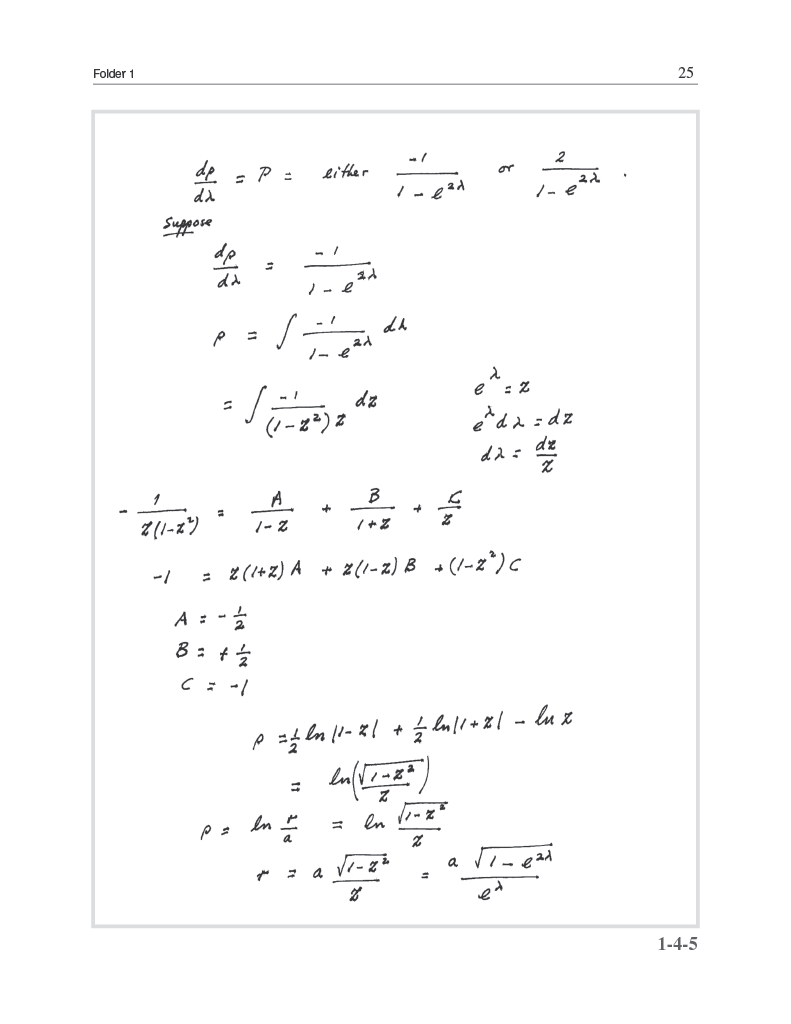 Folder 1 25
dρ/dλ = P = either -1/(1 - e^{2λ}) or 2/(1 - e^{2λ}) .
Suppose
dρ/dλ = -1/(1 - e^{2λ})
ρ = ∫ -1/(1 - e^{2λ}) dλ
= ∫ -1/((1-z²) z) dz
e^λ = z
e^λ dλ = dz
dλ = dz/z
- 1/(z(1-z²)) = A/(1-z) + B/(1+z) + C/z
-1 = z(1+z) A + z(1-z) B + (1-z²) C
A = - 1/2
B = + 1/2
C = -1
ρ = 1/2 ln |1-z| + 1/2 ln |1+z| - ln z
= ln(√(1-z²)/z)
ρ = ln r/a = ln √(1-z²)/z
r = a √(1-z²)/z = a √(1 - e^{2λ})/e^λ
1-4-5